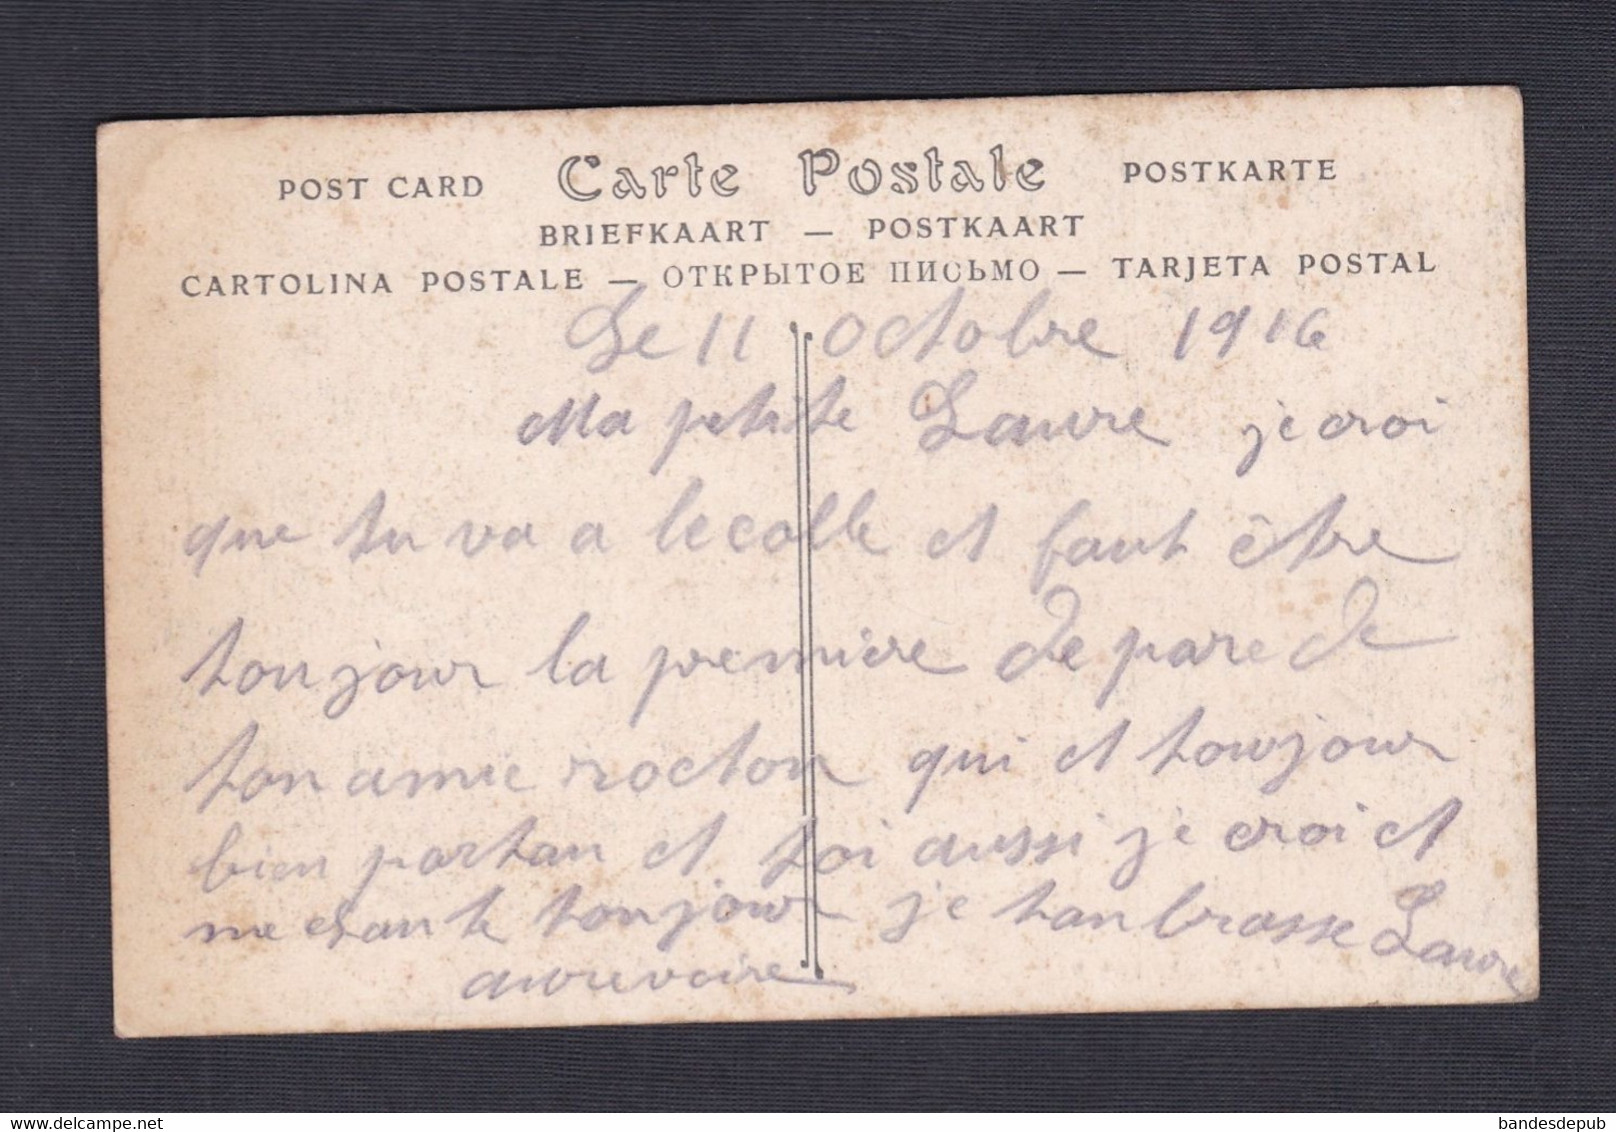 POST CARD Carte Postale POSTKARTE
BRIEFKAART — POSTKAART
CARTOLINA POSTALE — ОТКРЫТОЕ ПИСЬМО — TARJETA POSTAL
Le 11 octobre 1916
Ma petite Laure je croi
que tu va a lecolle et faut être
toujour la premiere de pare de
ton amie rocton qui et toujour
bien portan et toi aussi je croi et
mechante toujour je tanbrasse Laure
aurevoire
bandesdepub